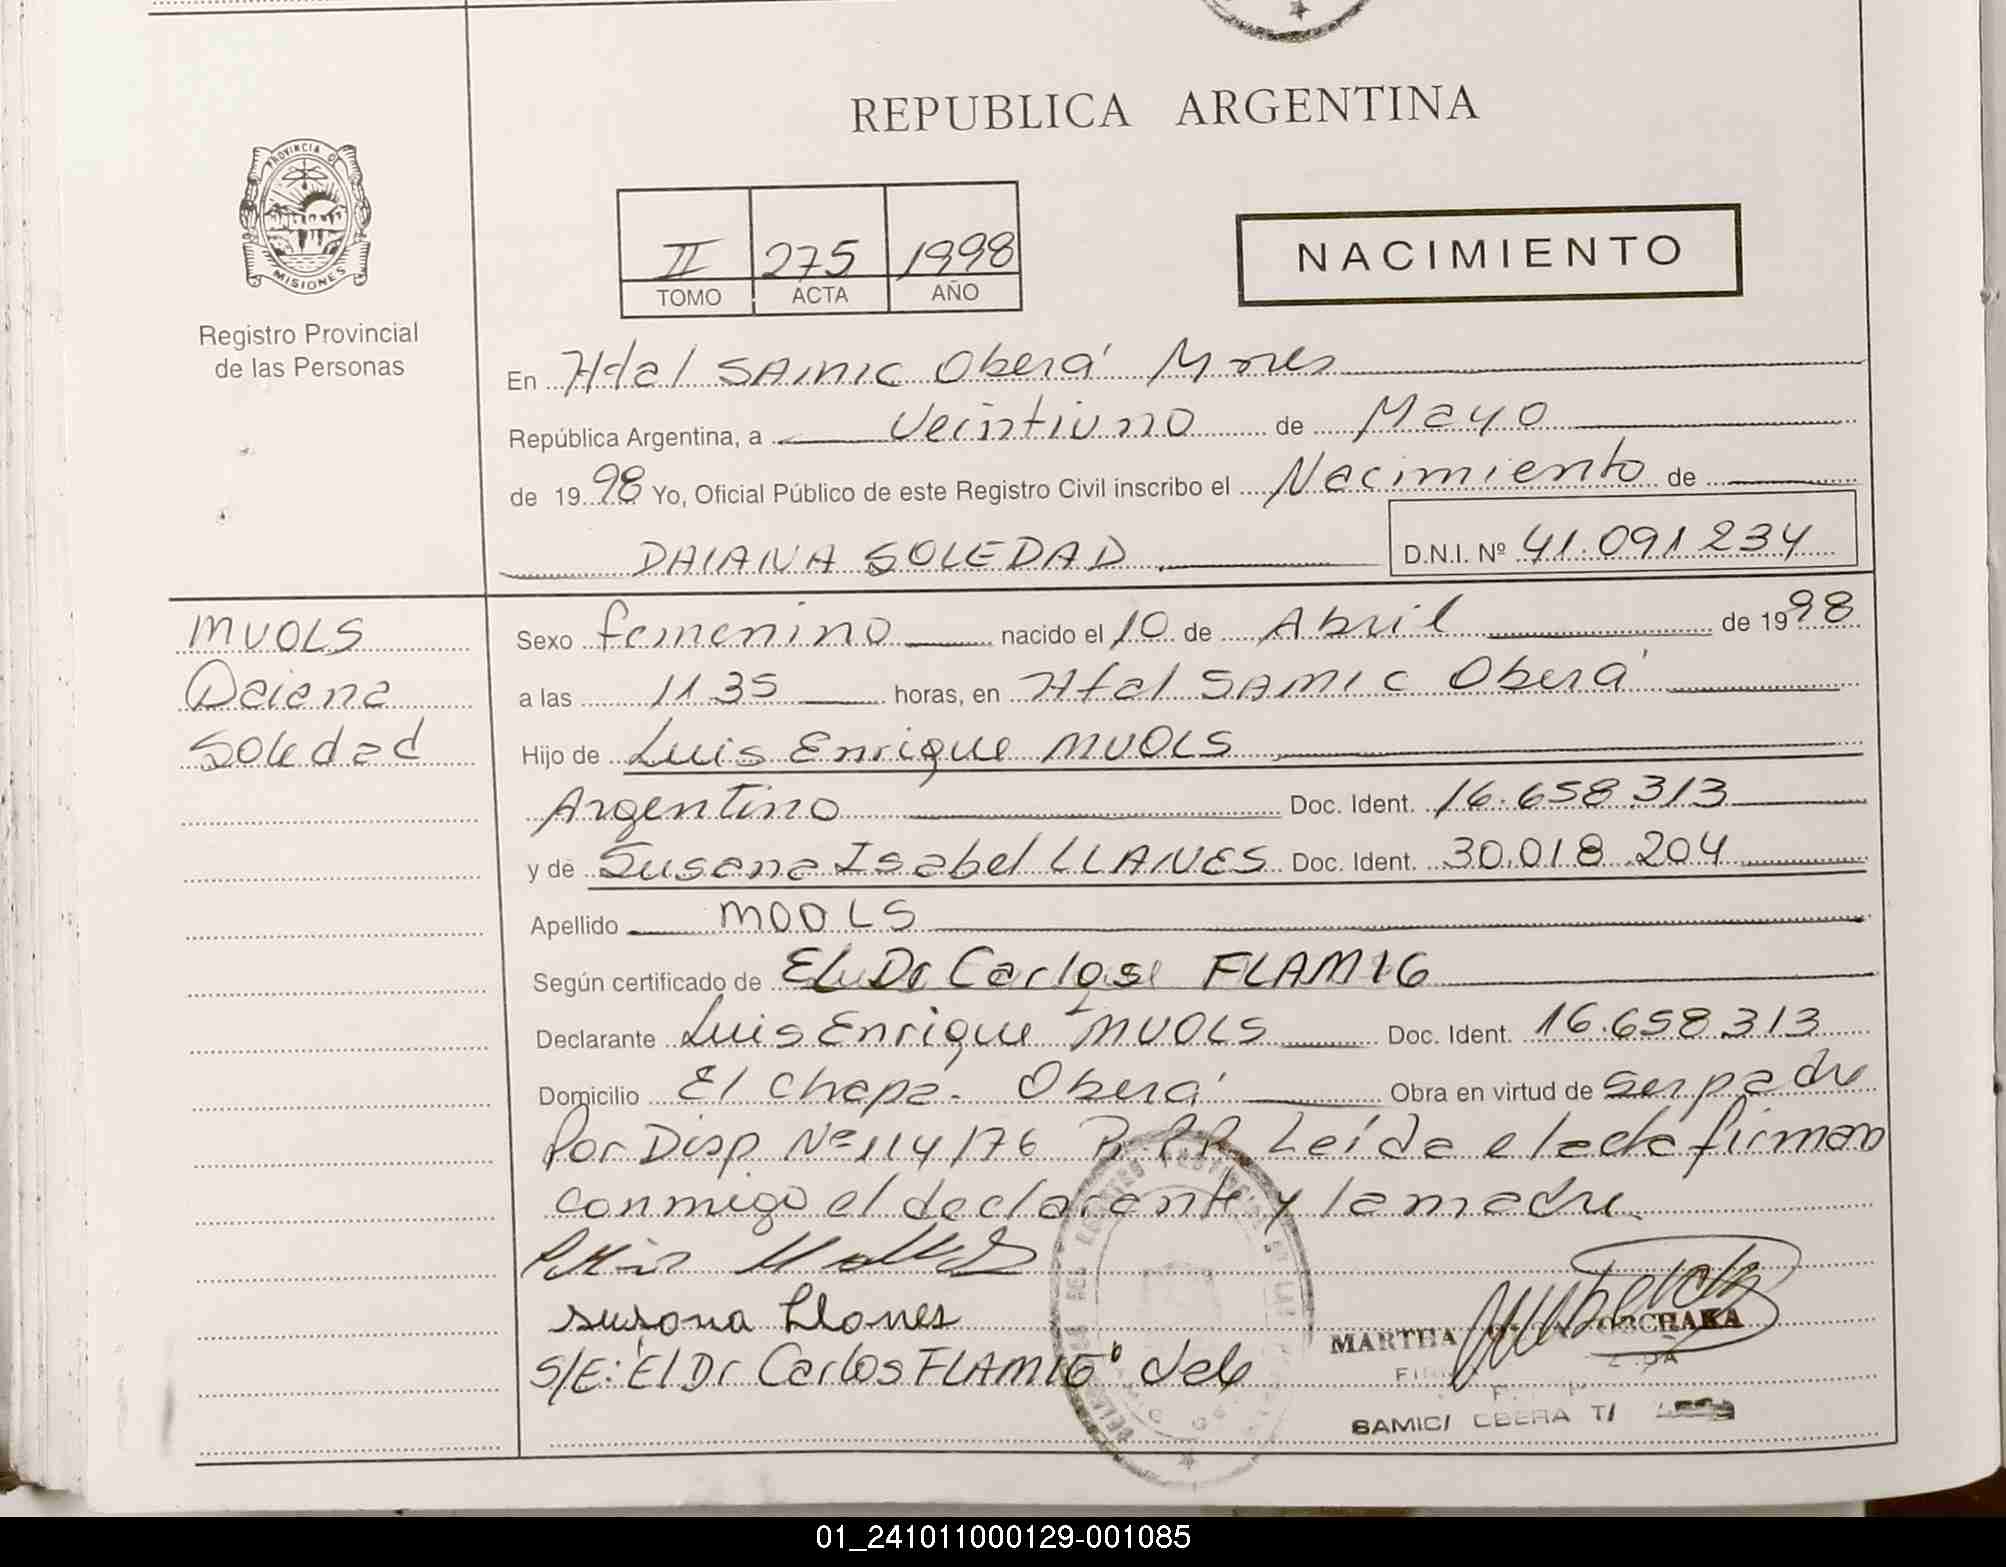 REPUBLICA ARGENTINA
PROVINCIA D MISIONES
Registro Provincial
de las Personas
II 275 1998
TOMO ACTA AÑO
NACIMIENTO
En Htal SAMIC Oberá Mnes
República Argentina, a Veintiuno de Mayo
de 1998 Yo, Oficial Público de este Registro Civil inscribo el Nacimiento de
DAIANA SOLEDAD D.N.I. Nº 41.091.234
MUOLS
Daiana
Soledad
Sexo femenino nacido el 10 de Abril de 1998
a las 11.35 horas, en Htal SAMIC Oberá
Hijo de Luis Enrique MUOLS
Argentino Doc. Ident. 16.658.313
y de Susana Isabel LLANES Doc. Ident. 30.018.204
Apellido MOOLS
Según certificado de El Dr Carlos FLAMIG
Declarante Luis Enrique MUOLS Doc. Ident. 16.658.313
Domicilio El Chapá - Oberá Obra en virtud de ser padre
Por Disp Nº 114/76 R.P.P. Leída el acta firman
conmigo el declarante y la madre.
Susana Llanes
S/E: "El Dr Carlos FLAMIG" Vale
MARTHA
SAMIC/ OBERA T/
01_241011000129-001085